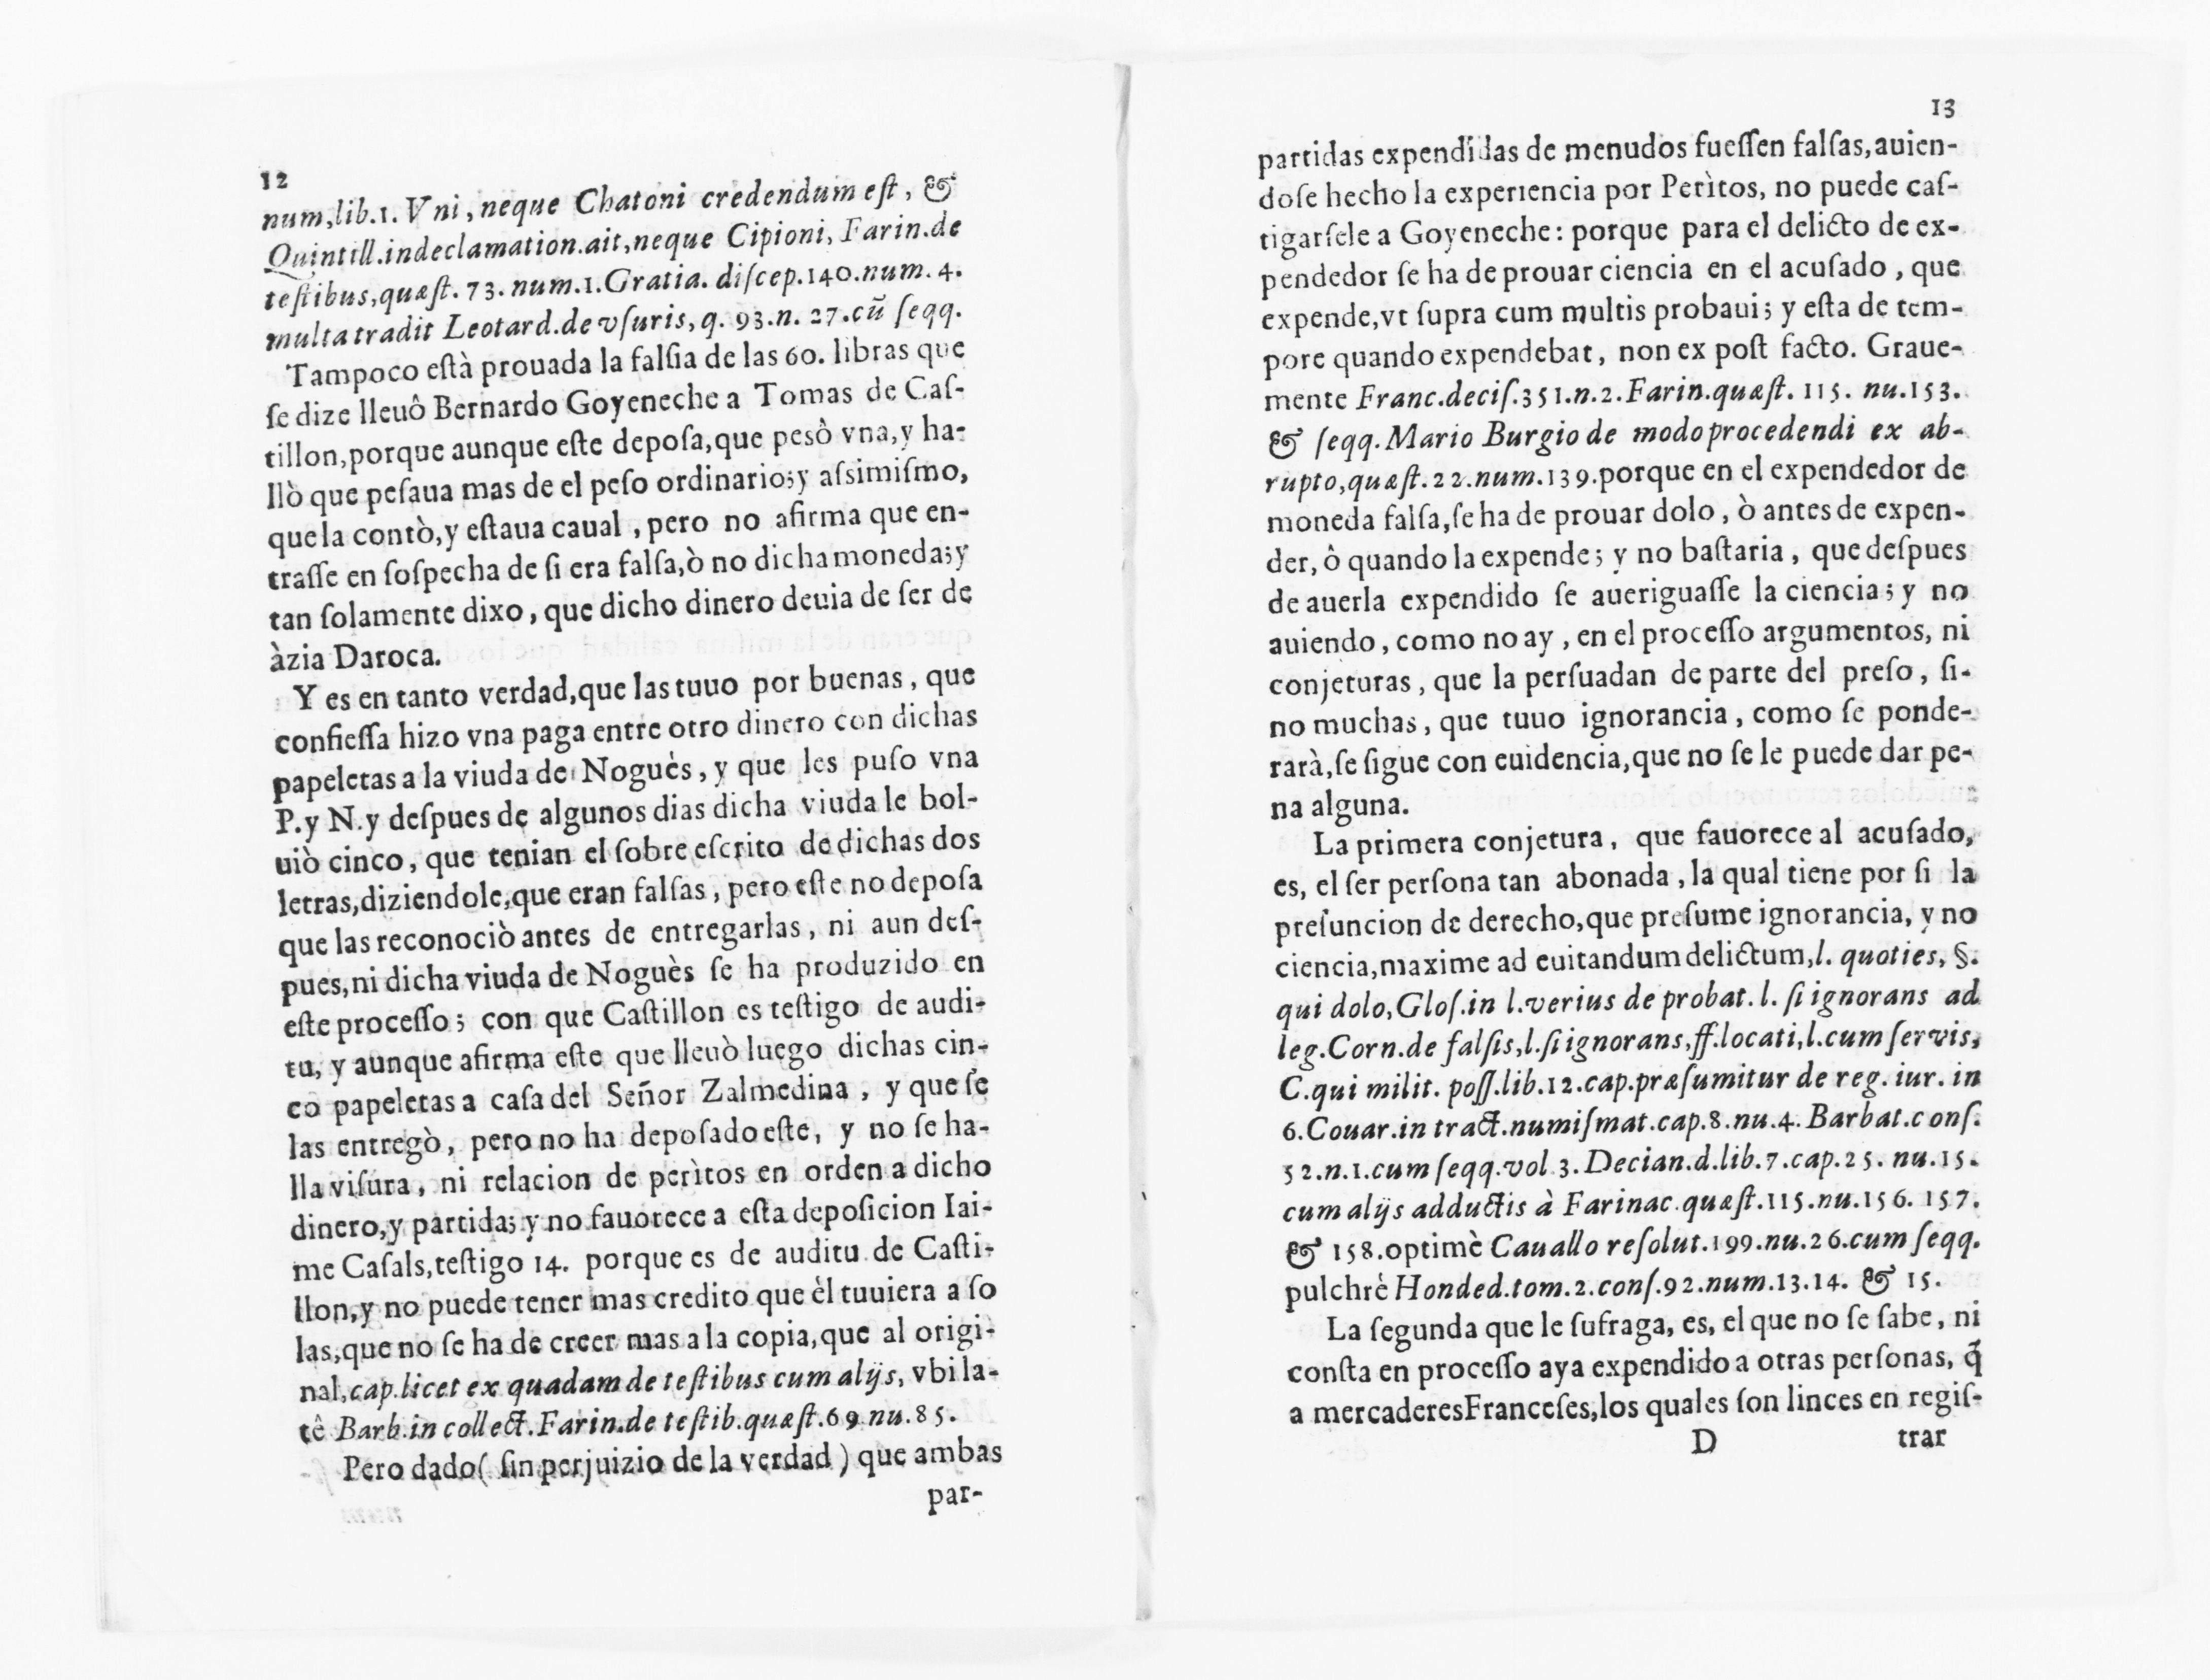 12
num,lib.1. Vni, neque Chatoni credendum eſt, &
Quintill.indeclamation.ait,neque Cipioni, Farin.de
teſtibus,quæſt. 73. num.1.Gratia. diſcep.140.num. 4.
multa tradit Leotard.de vſuris, q. 93.n. 27.cũ ſeqq.
Tampoco eſtà prouada la falſia de las 60. libras que
ſe dize lleuô Bernardo Goyeneche a Tomas de Caſ-
tillon,porque aunque eſte depoſa,que pesò vna,y ha-
llò que peſaua mas de el peſo ordinario;y aſsimiſmo,
que la contò,y eſtaua caual, pero no afirma que en-
traſſe en ſoſpecha de ſi era falſa,ò no dicha moneda;y
tan ſolamente dixo, que dicho dinero deuia de ſer de
àzia Daroca.
Y es en tanto verdad,que las tuuo por buenas, que
confieſſa hizo vna paga entre otro dinero con dichas
papeletas a la viuda de Noguès, y que les puſo vna
P.y N.y deſpues de algunos dias dicha viuda le bol-
uiò cinco, que tenian el ſobre eſcrito de dichas dos
letras,diziendole,que eran falſas, pero eſte no depoſa
que las reconociò antes de entregarlas, ni aun deſ-
pues,ni dicha viuda de Noguès ſe ha produzido en
eſte proceſſo; con que Caſtillon es teſtigo de audi-
tu, y aunque afirma eſte que lleuò luego dichas cin-
co papeletas a caſa del Señor Zalmedina, y que ſe
las entregò, pero no ha depoſado eſte, y no ſe ha-
lla viſura, ni relacion de perìtos en orden a dicho
dinero,y partida; y no fauorece a eſta depoſicion Iai-
me Caſals,teſtigo 14. porque es de auditu de Caſti-
llon,y no puede tener mas credito que èl tuuiera a ſo
las,que no ſe ha de creer mas a la copia,que al origi-
nal,cap.licet ex quadam de teſtibus cum alijs, vbi la-
tê Barb.in collect.Farin.de teſtib.quæſt.69.nu.85.
Pero dado( ſin perjuizio de la verdad ) que ambas
par-
13
partidas expendidas de menudos fueſſen falſas,auien-
doſe hecho la experiencia por Perìtos, no puede caſ-
tigarſele a Goyeneche: porque para el delicto de ex-
pendedor ſe ha de prouar ciencia en el acuſado, que
expende,vt ſupra cum multis probaui; y eſta de tem-
pore quando expendebat, non ex poſt facto. Graue-
mente Franc.deciſ.351.n.2.Farin.quæſt. 115. nu.153.
& ſeqq.Mario Burgio de modo procedendi ex ab-
rupto,quæſt.22.num.139.porque en el expendedor de
moneda falſa,ſe ha de prouar dolo, ò antes de expen-
der, ô quando la expende; y no baſtaria, que deſpues
de auerla expendido ſe aueriguaſſe la ciencia; y no
auiendo, como no ay, en el proceſſo argumentos, ni
conjeturas, que la perſuadan de parte del preſo, ſi-
no muchas, que tuuo ignorancia, como ſe ponde-
rarà,ſe ſigue con euidencia,que no ſe le puede dar pe-
na alguna.
La primera conjetura, que fauorece al acuſado,
es, el ſer perſona tan abonada, la qual tiene por ſi la
preſuncion de derecho,que preſume ignorancia, y no
ciencia,maxime ad euitandum delictum,l. quoties, §.
qui dolo,Gloſ.in l.verius de probat. l. ſi ignorans ad
leg.Corn.de falſis,l.ſi ignorans,ff.locati,l.cum ſervis,
C.qui milit. poſſ.lib.12.cap.præſumitur de reg. iur. in
6.Couar.in tract.numiſmat.cap.8.nu.4. Barbat.conſ.
52.n.1.cum ſeqq.vol 3.Decian.d.lib.7.cap.25. nu.15.
cum alijs adductis à Farinac.quæſt.115.nu.156. 157.
& 158.optimè Cauallo reſolut.199.nu.26.cum ſeqq.
pulchrè Honded.tom.2.conſ.92.num.13.14. & 15.
La ſegunda que le ſufraga, es, el que no ſe ſabe, ni
conſta en proceſſo aya expendido a otras perſonas, q̃
a mercaderesFranceſes,los quales ſon linces en regiſ-
D trar